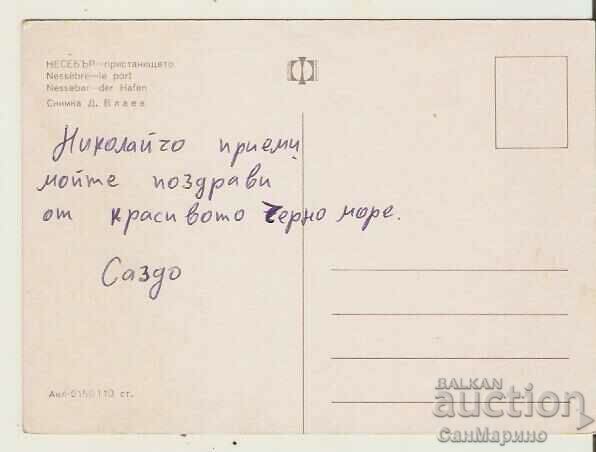 НЕСЕБЪР—пристанището
Nessèbre—le port
Nessebar—der Hafen
Снимка Д. Влаев
Николайчо приеми
мойте поздрави
от красивото Черно море.
Саздо
10 ст.
BALKAN
auction
СанМарино